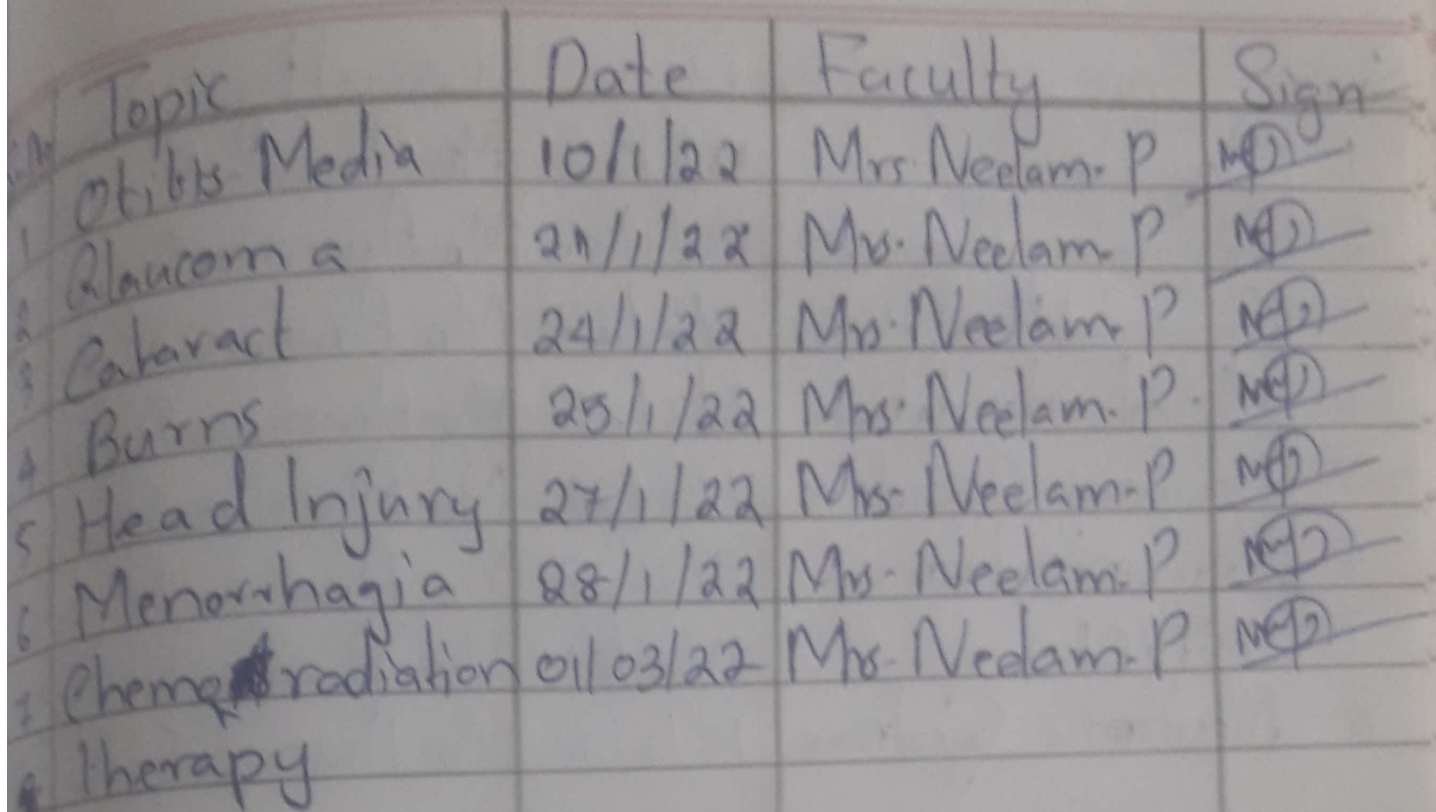 Topic Date Faculty Sign
1 Otitis Media 10/1/22 Mrs. Neelam. P
2 Glaucoma 21/1/22 Mrs. Neelam. P
3 Cataract 24/1/22 Mrs. Neelam. P
4 Burns 25/1/22 Mrs. Neelam. P.
5 Head Injury 27/1/22 Mrs. Neelam. P
6 Menorrhagia 28/1/22 Mrs. Neelam. P
7 Chemo radiation 01/03/22 Mrs. Neelam. P
therapy